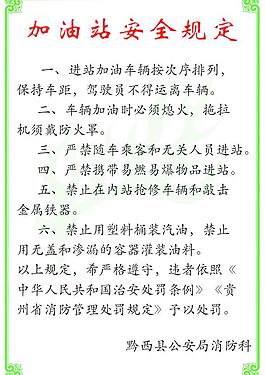 加油站安全规定
一、进站加油车辆按次序排列，
保持车距，驾驶员不得远离车辆。
二、车辆加油时必须熄火，拖拉
机须戴防火罩。
三、严禁随车乘客和无关人员进站。
四、严禁携带易燃易爆物品进站。
五、禁止在内站抢修车辆和敲击
金属铁器。
六、禁止用塑料桶装汽油，禁止
用无盖和渗漏的容器灌装油料。
以上规定，希严格遵守，违者依照《
中华人民共和国治安处罚条例》《贵
州省消防管理处罚规定》予以处罚。
黔西县公安局消防科